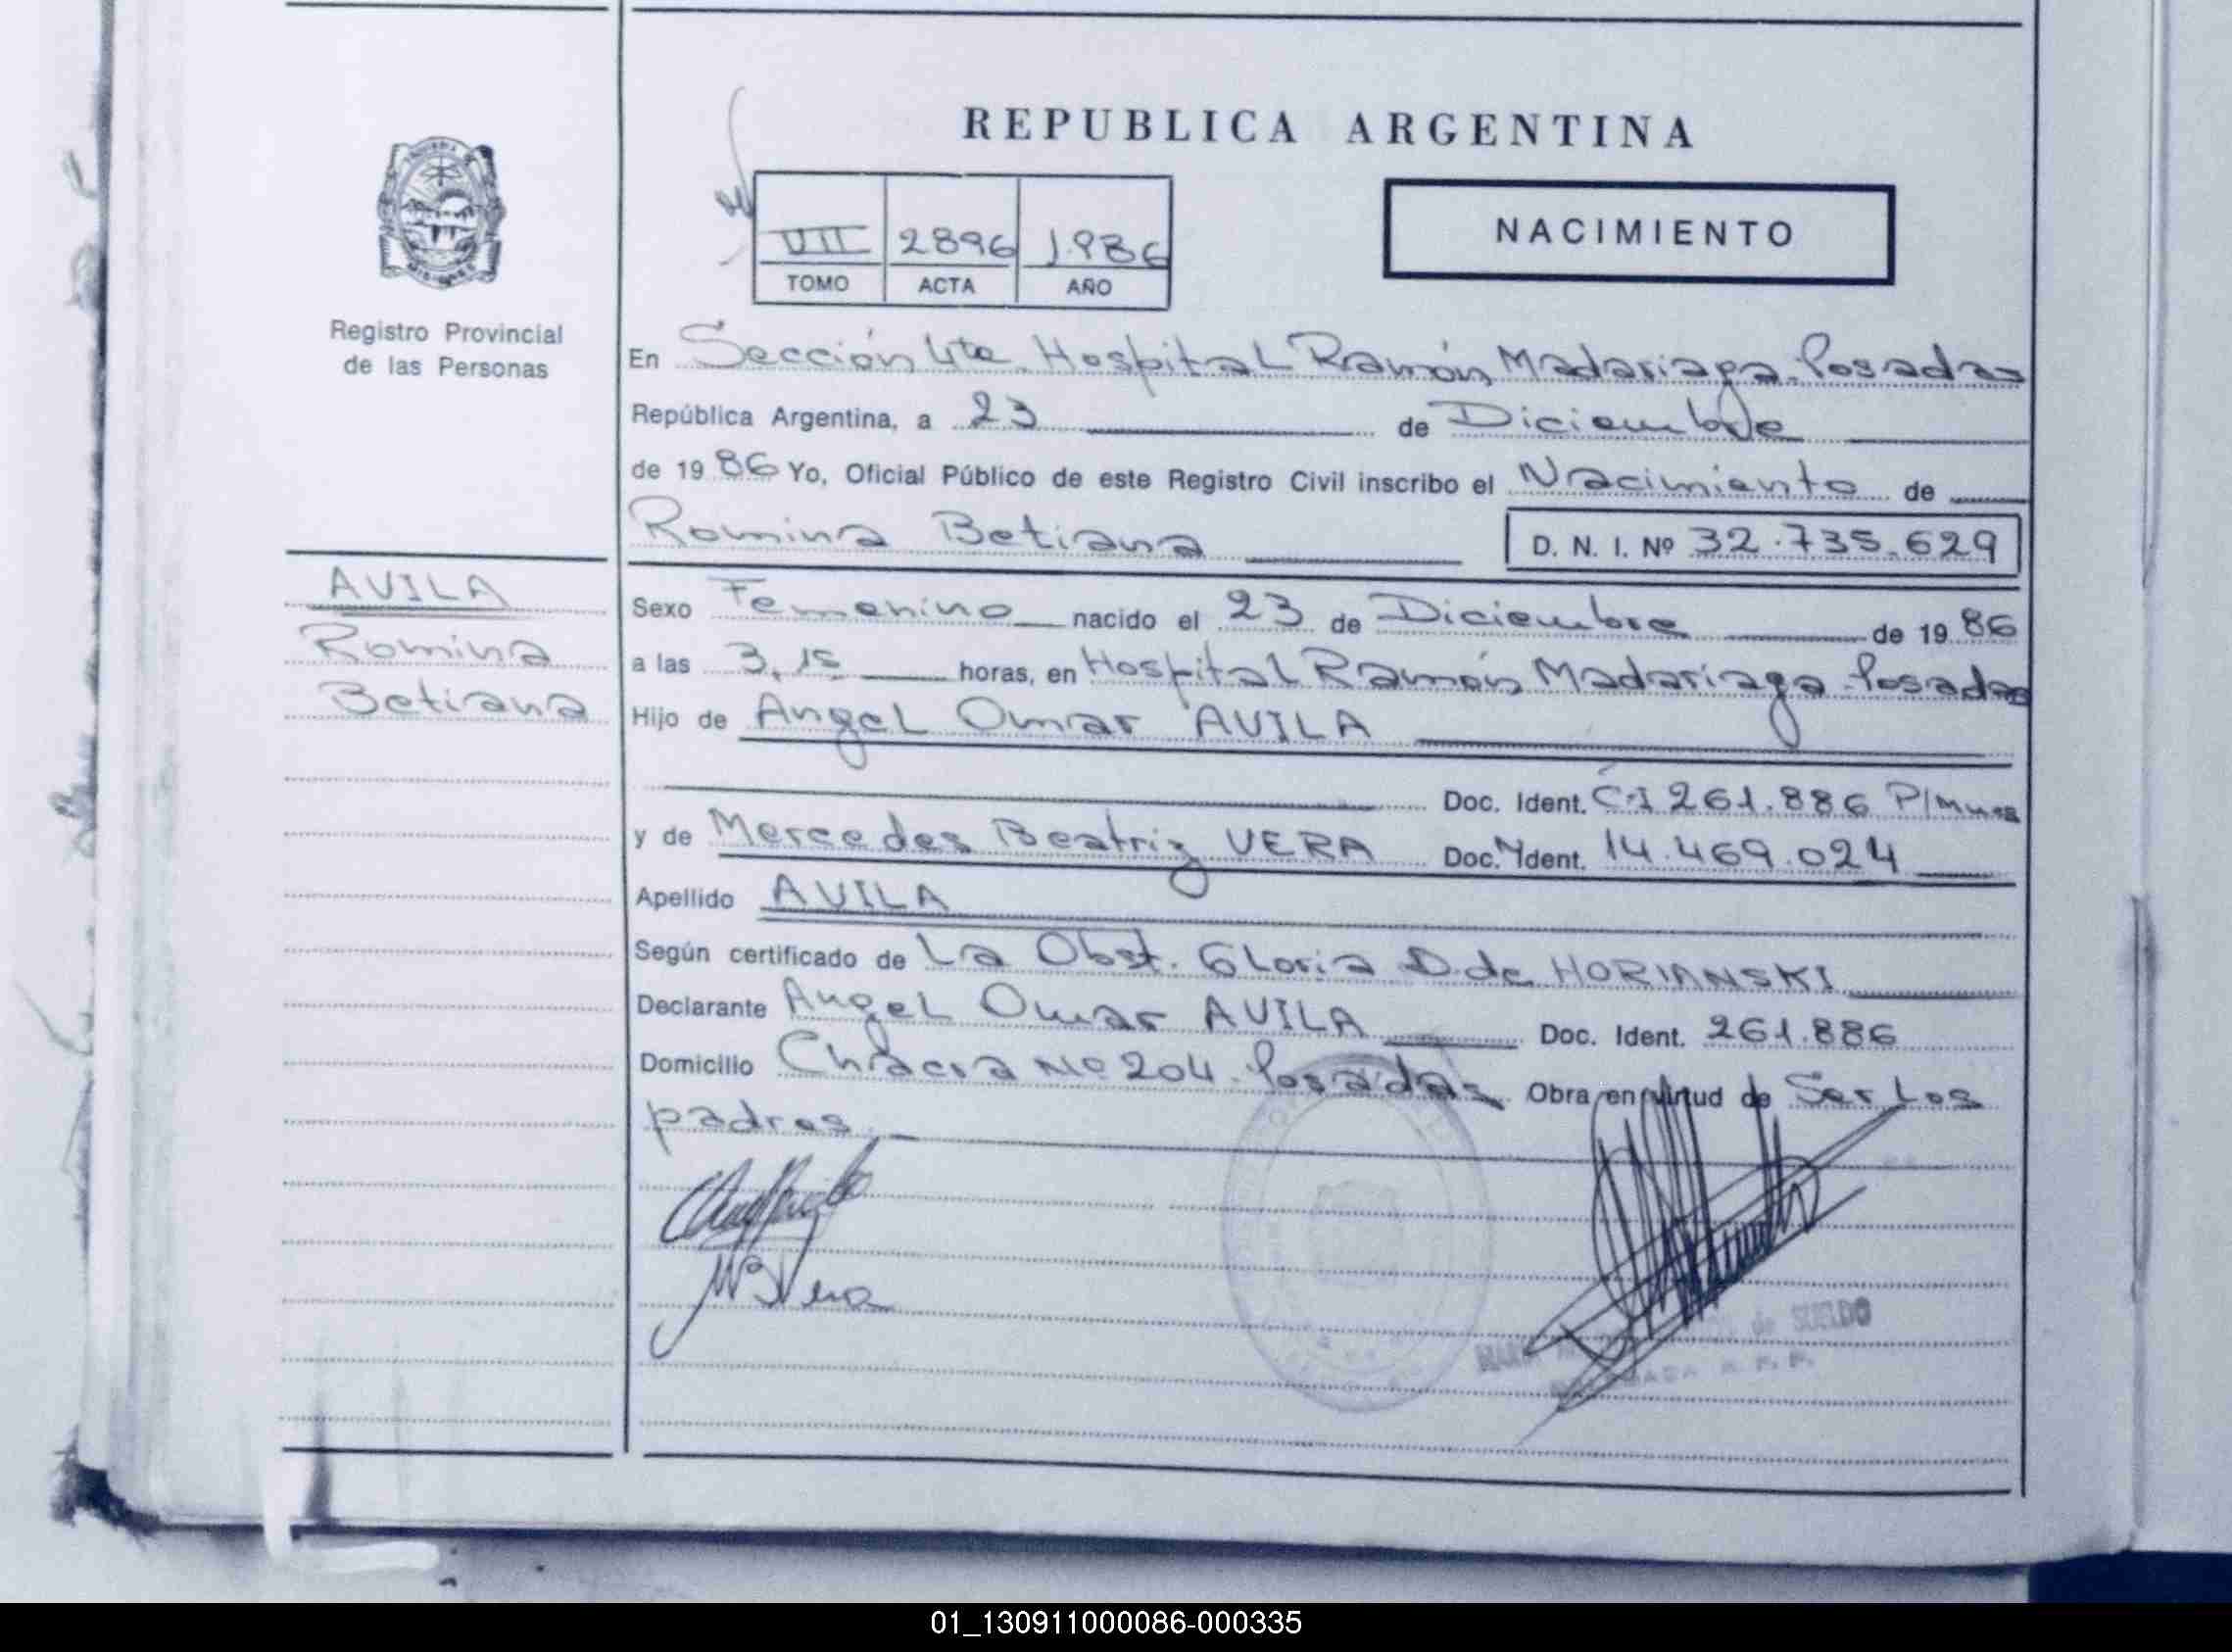 REPUBLICA ARGENTINA
NACIMIENTO
VII 2896 1.986
TOMO ACTA AÑO
Registro Provincial
de las Personas
En Sección 4ta. Hospital Ramón Madariaga. Posadas
República Argentina, a 23 de Diciembre
de 1986 Yo, Oficial Público de este Registro Civil inscribo el Nacimiento de
Romina Betiana D. N. I. Nº 32.735.629
AVILA
Romina
Betiana
Sexo Femenino nacido el 23 de Diciembre de 1986
a las 3,15 horas, en Hospital Ramón Madariaga. Posadas
Hijo de Angel Omar AVILA
Doc. Ident. C.I 261.886 P/Mnes
y de Mercedes Beatriz VERA Doc. Ident. 14.469.024
Apellido AVILA
Según certificado de La Obst. Gloria D. de HORIANSKI
Declarante Angel Omar AVILA Doc. Ident. 261.886
Domicilio Chacra Nº 204. Posadas Obra en virtud de Ser Los
padres.
MBVera
de SUELDO
01_130911000086-000335